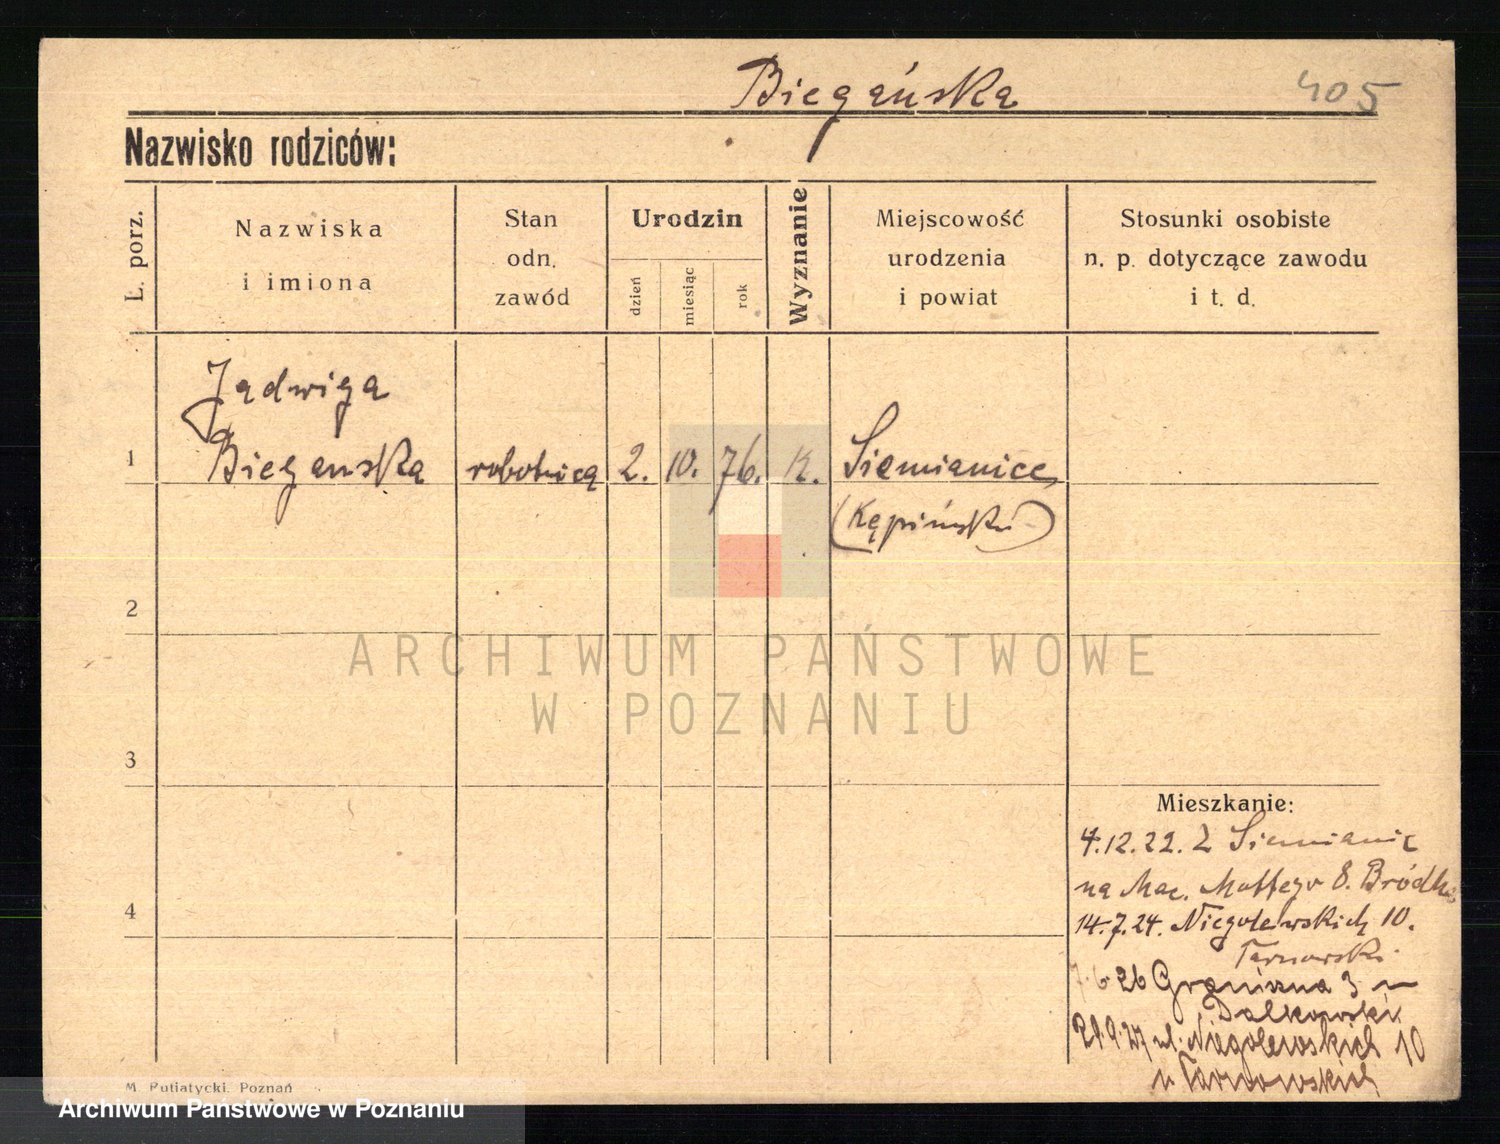 Biegańska
405
Nazwisko rodziców:
L. porz.
Nazwiska
i imiona
Stan
odn.
zawód
Urodzin
dzień
miesiąc
rok
Wyznanie
Miejscowość
urodzenia
i powiat
Stosunki osobiste
n. p. dotyczące zawodu
i t. d.
Jadwiga
1 Biegańska robotnica 2. 10. 76. K. Siemianice
(Kępiński)
2
ARCHIWUM PAŃSTWOWE
W POZNANIU
3
Mieszkanie:
4.12.22. Z Siemianic
na Mac. Mottego 8. Bródka
4
14.7.24. Niegolewskich 10.
Tarnowski
7.6.26 Graniczna 3
Dalkowski
29.9.27 ul. Niegolewskich 10
u Tarnowskich
M. Putiatycki. Poznań
Archiwum Państwowe w Poznaniu